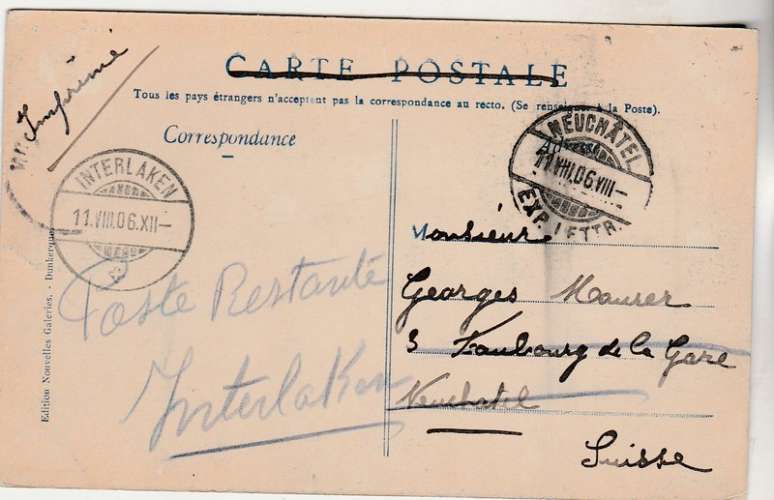 Imprimé
CARTE POSTALE
Tous les pays étrangers n'acceptent pas la correspondance au recto. (Se renseigner à la Poste).
Correspondance
INTERLAKEN
11.VIII.06.XII–
NEUCHÂTEL
11.VIII.06.VIII–
EXP. LETTR.
Monsieur
Georges Maurer
3 Faubourg de la Gare
Neuchatel
Suisse
Poste Restante
Interlaken
Edition Nouvelles Galeries. - Dunkerque